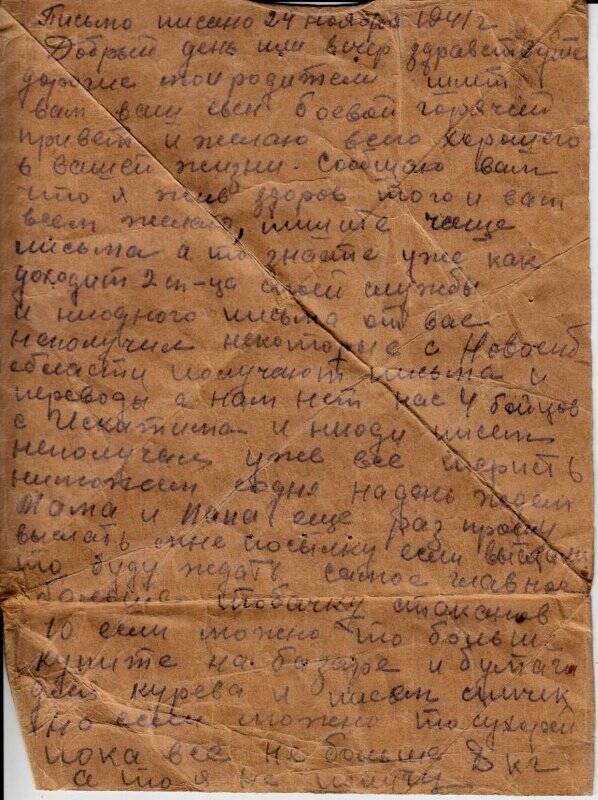 Письмо писано 24 ноября 1941 г
Добрый день или вечер здравствуйте
дорогие мои родители шлит
вам ваш сын боевой горячий
привет и желаю всего хорошего
в вашей жизни. Сообщаю вам
что я жив здоров того и вам
всем желаю, пишите чаще
письма а то знаете уже как
доходит 2 м-ца моей службы
и ниодного письма от вас
неполучил некоторые с Новосиб
области получают письма и
переводы а нам нет нас 4 бойцов
с Искитима и писем
неполучаем уже все
ниможем содня надень ждем
Мама и Папа еще раз прошу
выслать мне посылку если выслали
то буду ждать самое главное
табачку стаканов
10 если можно то больше
купите на базаре и бумаги
для курева и писем спичек
но если можно то сухарей
пока все не больше 8 кг
а то я не получу